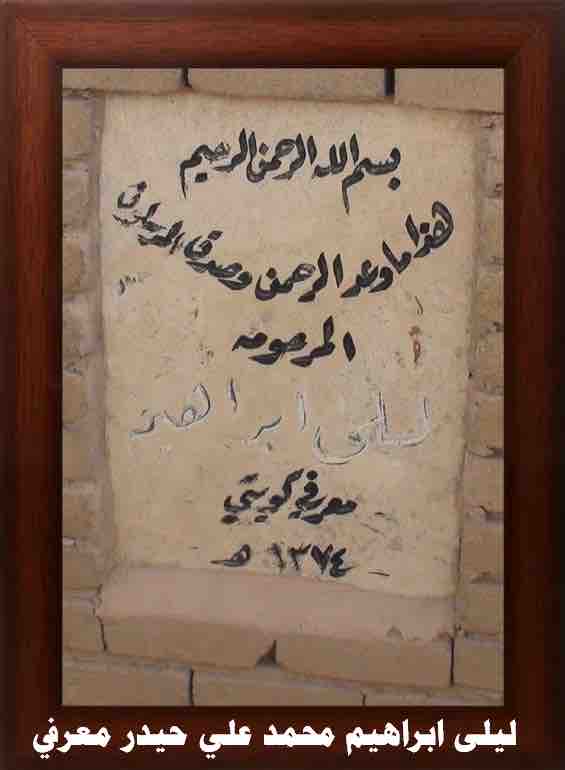 بسم الله الرحمن الرحيم
هذا ما وعد الرحمن وصدق المرسلون
المرحومه
ليلى ابراهيم
معرفي كويتي
١٣٧٤ هـ
ليلى ابراهيم محمد علي حيدر معرفي